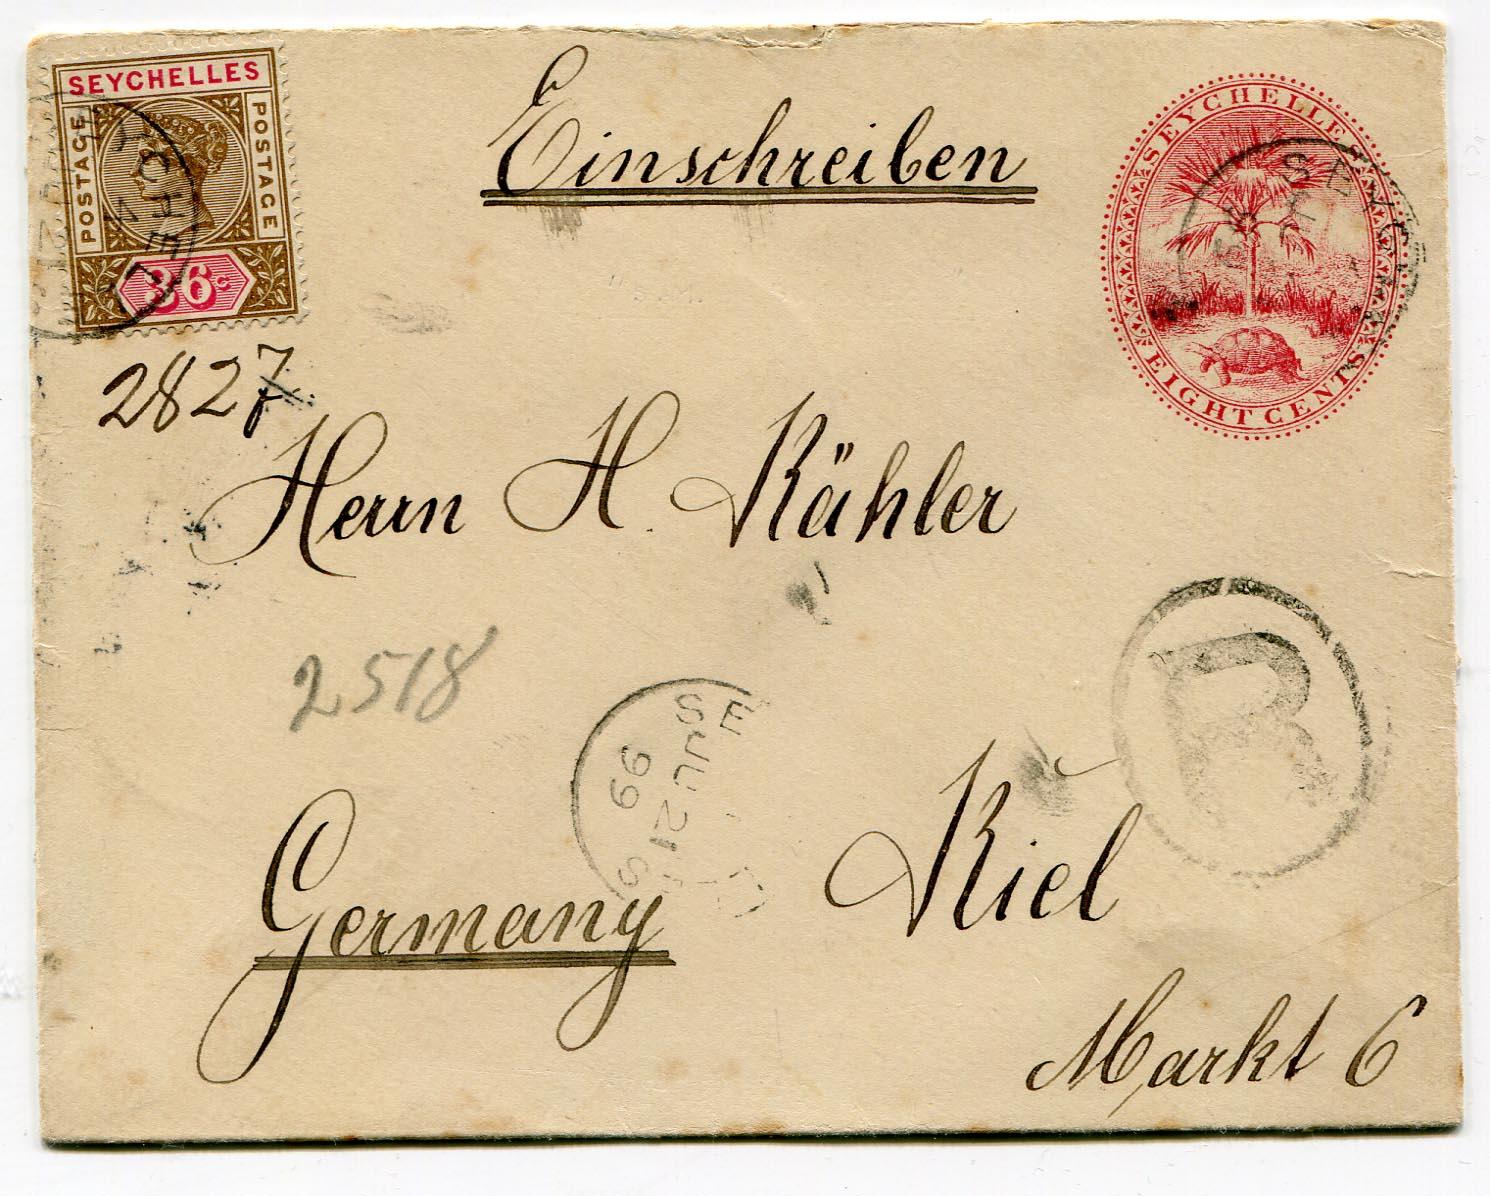 SEYCHELLES
POSTAGE
POSTAGE
36c
Einschreiben
SEYCHELLES
EIGHT CENTS
2827
Herrn H. Kähler
2518
R
SE
JUL 21
99
S
Germany
Kiel
Markt 6